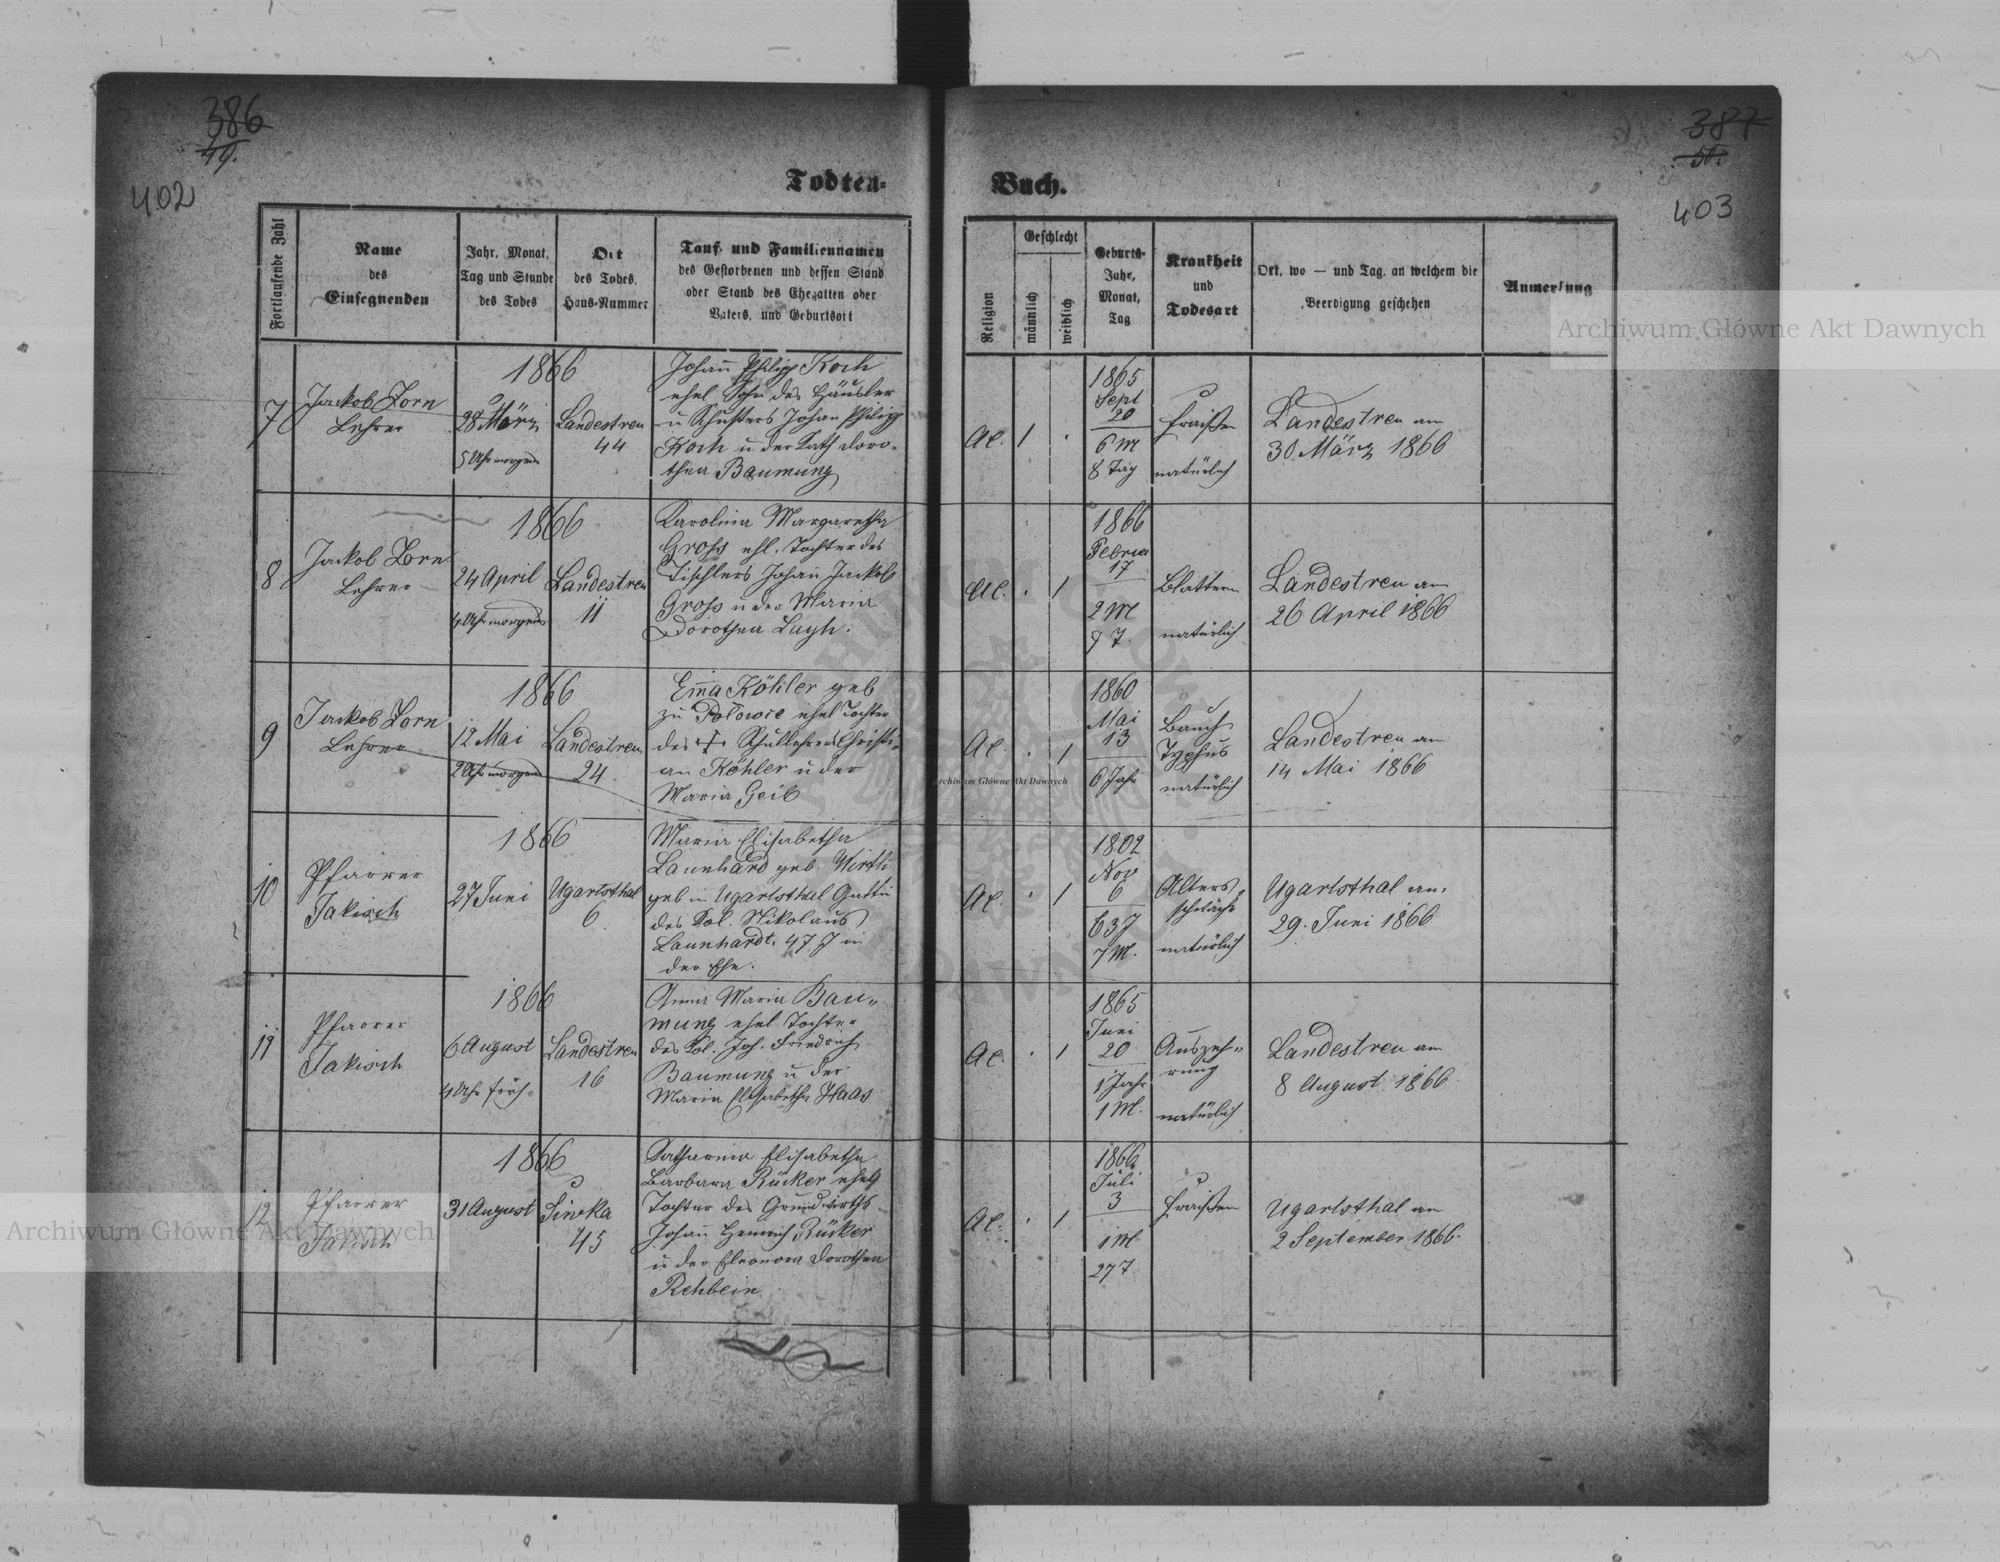 386
49.
402
387
50.
403
Todten-
Buch.
Fortlaufende Zahl
Name
des
Einsegnenden
Jahr, Monat,
Tag und Stunde
des Todes
Ort
des Todes,
Haus-Nummer
Tauf- und Familiennamen
des Gestorbenen und dessen Stand
oder Stand des Ehegatten oder
Vaters, und Geburtsort
Religion
Geschlecht
männlich
weiblich
Geburts-
Jahr,
Monat,
Tag
Krankheit
und
Todesart
Ort, wo — und Tag, an welchem die
Beerdigung geschehen
Anmerkung
7
Jackob Zorn
Lehrer
1866
28 März
5 Uhr morgens
Landestreu
44
Johann Philipp Koch
ehel Sohn des Häusler
u Schusters Johan Philipp
Koch u der Kath Doro-
thea Baumung
A C.
1
1865
Sept
20
6 M
8 Tag
Fraisen
natürlich
Landestreu am
30 März 1866
8
Jackob Zorn
Lehrer
1866
24 April
4 Uhr morgens
Landestreu
11
Karolina Margaretha
Gross ehl. Tochter des
Tischlers Johann Jackob
Gross u der Maria
Dorothea
A C.
1
1866
Februar
17
2 M
7 T.
Blattern
natürlich
Landestreu am
26 April 1866
9
Jackob Zorn
Lehrer
1866
12 Mai
2 Uhr morgens
Landestreu
24
Emma Köhler geb
zu ehel Tochter
des + Schullehrers Christi-
an Köhler u der
Maria Geib
A C.
1
1860
Mai
13
6 Jahr
Bauch
Typhus
natürlich
Landestreu am
14 Mai 1866
10
Pfarrer
Jakisch
1866
27 Juni
Ugartsthal
6
Maria Elisabetha
Launhard geb. Wirth
geb in Ugartsthal Gattin
des Kol. Nikolaus
Launhardt. 47 J in
der Ehe.
A C.
1
1802
Nov
6
63 J
7 M.
Alters
schwäche
natürlich
Ugartsthal am
29. Juni 1866
11
Pfarrer
Jakisch
1866
6 August
4 Uhr früh
Landestreu
16
Anna Maria Bau-
mung ehel Tochter
des Kol. Joh. Friedrich
Baumung u der
Maria Elisabetha Haas
A C.
1
1865
Juni
20
1 Jahr
1 M.
Auszeh-
rung
natürlich
Landestreu am
8 August 1866
12
Pfarrer
Jakisch
1866
31 August
Siwka
45
Katharina Elisabetha
Barbara Rücker ehel
Tochter des Grundwirths
Johann Heinrich Rücker
u der Eleonora Dorothea
Rehbein
A C.
1
1866
Juli
3
1 M
27 T
Fraisen
Ugartsthal am
2 September 1866.
Archiwum Główne Akt Dawnych
Archiwum Główne Akt Dawnych
Archiwum Główne Akt Dawnych